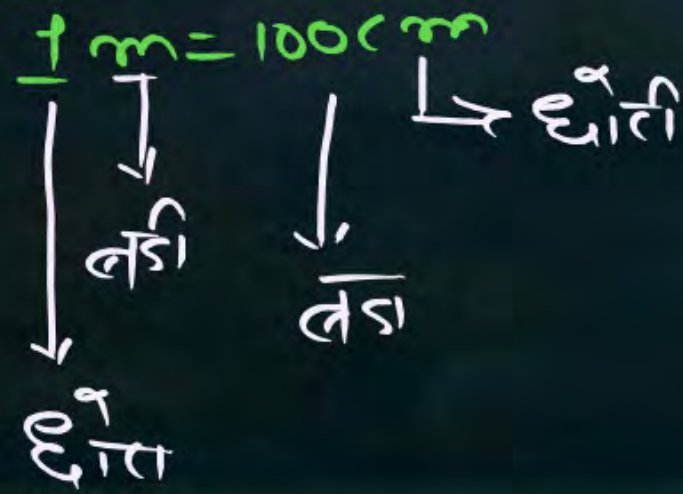 1 m = 100 cm
छोटी
बडी
बडा
छोटा